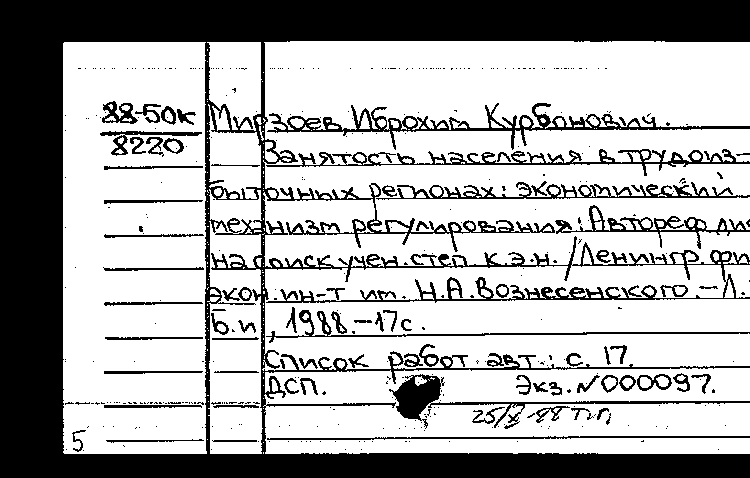 88-50к
8220
Мирзоев, Иброхим Курбонович.
Занятость населения в трудоиз-
быточных регионах: экономический
механизм регулирования: Автореф. дис
на соиск. учен. степ. к.э.н. / Ленингр. фин
экон. ин-т им. Н.А. Вознесенского. – Л.
Б.и., 1988. – 17с.
Список работ авт.: с. 17.
ДСП. Экз. N 000097.
25/X-88
5